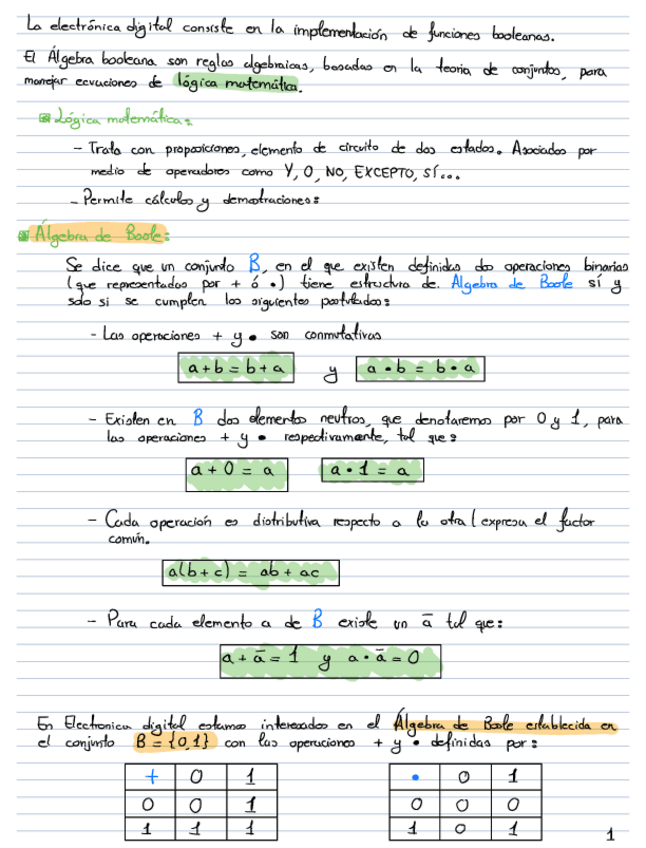 La electrónica digital consiste en la implementación de funciones booleanas.
El Álgebra booleana son reglas algebraicas, basadas en la teoria de conjuntos, para
manejar ecuaciones de lógica matemática.
Lógica matemática:
- Trata con proposiciones, elemento de circuito de dos estados. Asociados por
medio de operadores como Y, O, NO, EXCEPTO, SÍ...
- Permite cálculos y demostraciones:
Álgebra de Boole:
Se dice que un conjunto B, en el que existen definidas dos operaciones binarias
(que representadas por + ó •) tiene estructura de. Álgebra de Boole sí y
solo si se cumplen los siguientes postulados:
- Las operaciones + y • son conmutativas
a + b = b + a y a • b = b • a
- Existen en B dos elementos neutros, que denotaremos por 0 y 1, para
las operaciones + y • respectivamente, tal que:
a + 0 = a a • 1 = a
- Cada operación es distributiva respecto a la otra (expresa el factor
común.
a(b + c) = ab + ac
- Para cada elemento a de B existe un ā tal que:
a + ā = 1 y a • ā = 0
En Electronica digital estamos interesados en el Álgebra de Boole establecida en
el conjunto B = {0,1} con las operaciones + y • definidas por:
+ 0 1 • 0 1
0 0 1 0 0 0
1 1 1 1 0 1
1